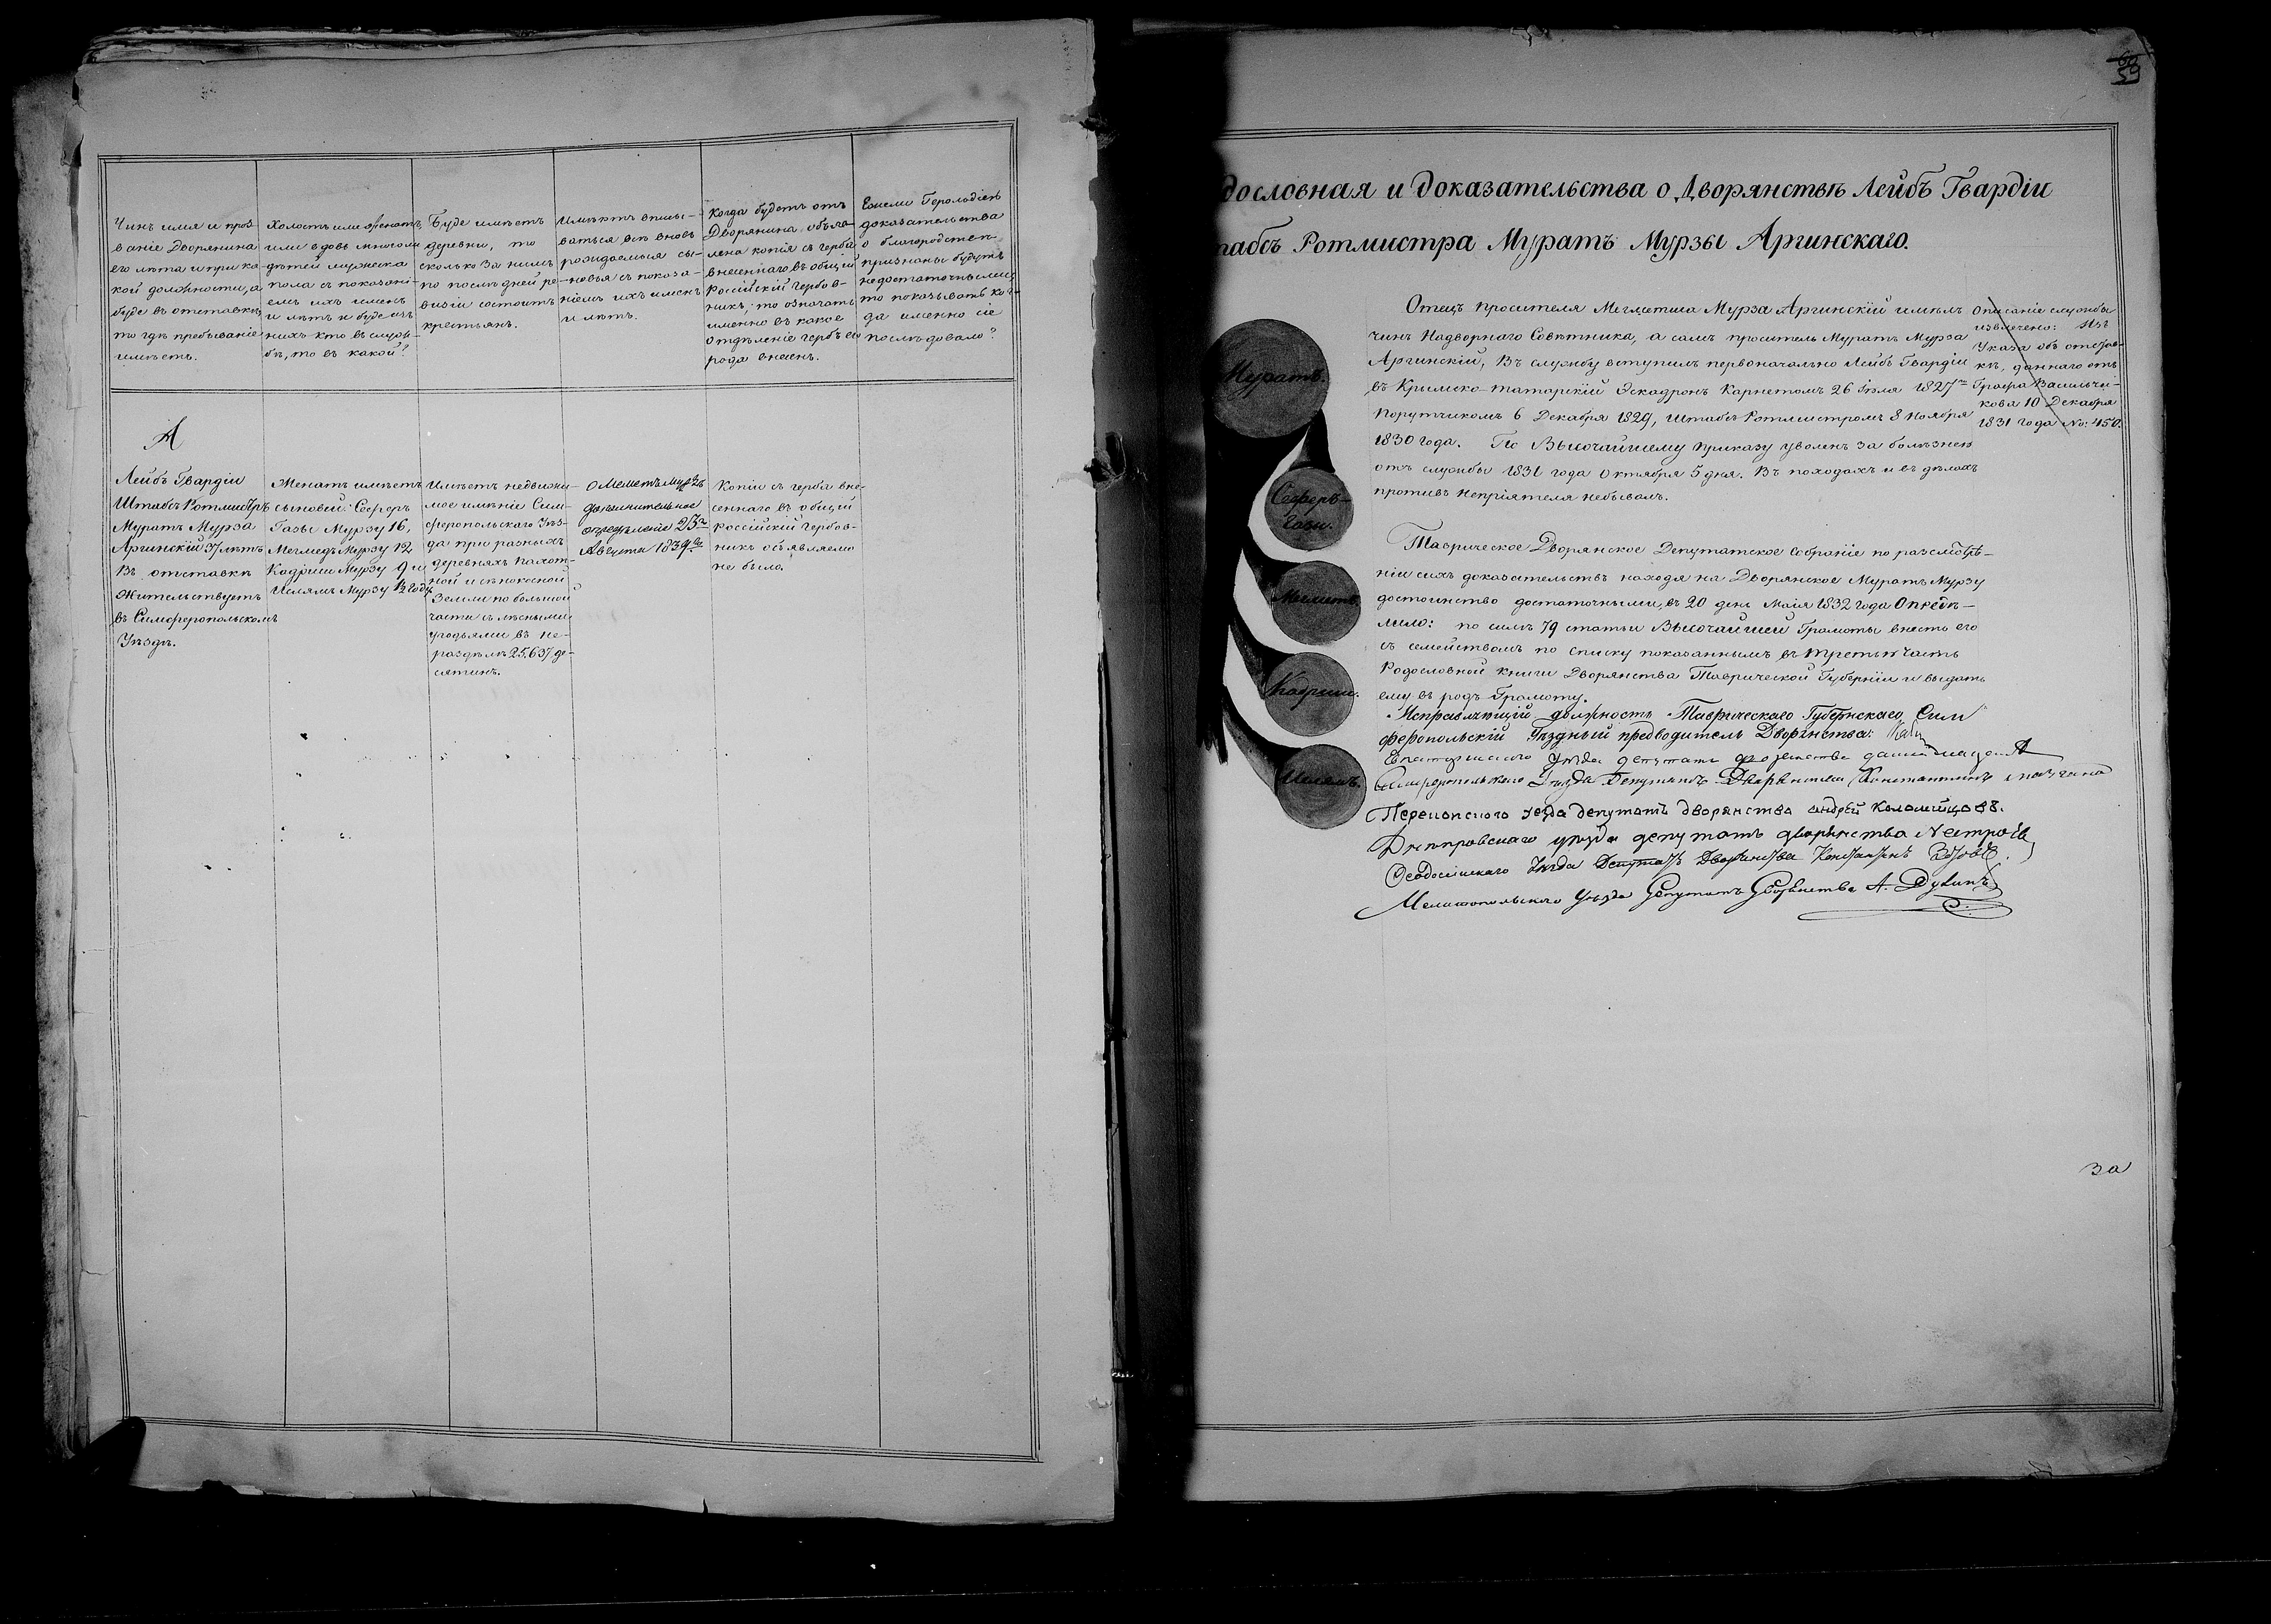 Чинъ имя и проз-
ваніе Дворянина
его лѣта и при ка
кой должности, а
буде въ отставкѣ,
то гдѣ пребываніе
имѣетъ.
Холостъ или женатъ
или вдовъ много ли
дѣтей мужеска
пола съ показані-
емъ ихъ именъ
и лѣтъ и буде изъ
нихъ кто въ служ-
бѣ, то въ какой?
Буде имѣетъ
деревни, то
сколько за нимъ
по послѣдней ре-
визіи состоитъ
крестьянъ.
Имѣютъ вписы-
ваться всѣ вновь
рождаемыя сы-
новья съ показа-
ніемъ ихъ именъ
и лѣтъ.
Когда будетъ отъ
Дворянина объяв-
лена копія съ герба
внесеннаго въ общій
Россійскій Гербов-
никъ, то означать
именно въ какое
отдѣленіе гербъ его
рода внесенъ.
Ежели Герольдіею
доказательства
о благородствѣ
признаны будутъ
недостаточными,
то показывать ког
да именно сіе
послѣдовало?
А
Лейбъ Гвардіи
Штабсъ Ротмистръ
Муратъ Мурза
Аргинскій 37 лѣтъ
Въ отставкѣ
Жительствуетъ
въ Симферопольскомъ
Уѣздѣ.
Женатъ имѣетъ
сыновей: Сеферъ
Газы Мурзу 16,
Мегмедъ Мурзу 12
Кадрши Мурзу 9 и
Ислямъ Мурзу 1½ года
Имѣетъ недвижи-
мое имѣніе Сим-
феропольскаго Уѣз-
да при разныхъ
деревняхъ пахот-
ной и сѣнокосной
Земли по большой
части съ лѣсными
угодьями въ не-
раздѣлѣ 25,637 де-
сятинъ.
О Меметъ мурзѣ
дополнительное
опредѣленіе 23го
Августа 1839 го
Копіи съ герба вне-
сеннаго въ общій
Россійскій Гербов-
никъ объявляемо
не было.
60
59
дословная и доказательства о Дворянствѣ Лейбъ Гвардіи
табсъ Ротмистра Муратъ Мурзы Аргинскаго.
Муратъ.
Сеферъ-
Газы.
Мегметъ.
Кадрши.
Ислямъ.
Отецъ просителя Мегметша Мурза Аргинскій имѣлъ
чинъ Надворнаго Совѣтника, а самъ проситель Муратъ Мурза
Аргинскій, Въ службу вступилъ первоначально Лейбъ Гвардіи
въ Крымско-татарскій Эскадронъ Карнетомъ 26 Іюля 1827го
Порутчикомъ 6 Декабря 1829, Штабсъ Ротмистромъ 8 Ноября
1830 года. По Высочайшему приказу уволенъ за болѣзнею
отъ службы 1831 года Октября 5 дня. Въ походахъ и въ дѣлахъ
противъ непріятеля небывалъ.
Описаніе службы
извлечено: Изъ
Указа объ отстав-
кѣ, даннаго отъ
Графа Васильчи-
кова 10 Декабря
1831 года №: 450.
Таврическое Дворянское Депутатское Собраніе по разсмотрѣ-
ніи сихъ доказательствъ находя на Дворянское Муратъ Мурзу
достоинство достаточными, въ 20 день Маія 1832 года Опредѣ-
лило: по силѣ 79 статьи Высочайшей Грамоты внесть его
съ семействомъ по списку показаннымъ въ третью часть
Родословной книги Дворянства Таврической Губерніи и выдать
ему въ родъ Грамоту.
Исправляющій должность Таврическаго Губернскаго, Сим
феропольскій Уѣздный предводитель Дворянства:
Евпаторійскаго уѣзда депутатъ дворянства
Симферопольскаго Уѣзда Депутатъ Дворянства Константинъ
Перекопскаго уезда депутатъ дворянства андрей Коломийцовъ.
Днѣпровскаго уѣзда депутатъ дворянства
Ѳеодосійскаго Уѣзда Депутатъ Дворянства Константинъ
Мелитопольскаго Уѣзда Депутатъ Дворянства А.
За